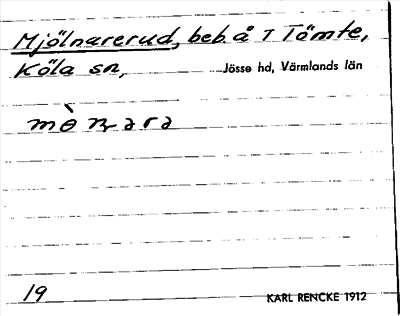 Mjölnarerud, beb. å T Tömte,
Köla sn, Jösse hd, Värmlands län
19 KARL RENCKE 1912